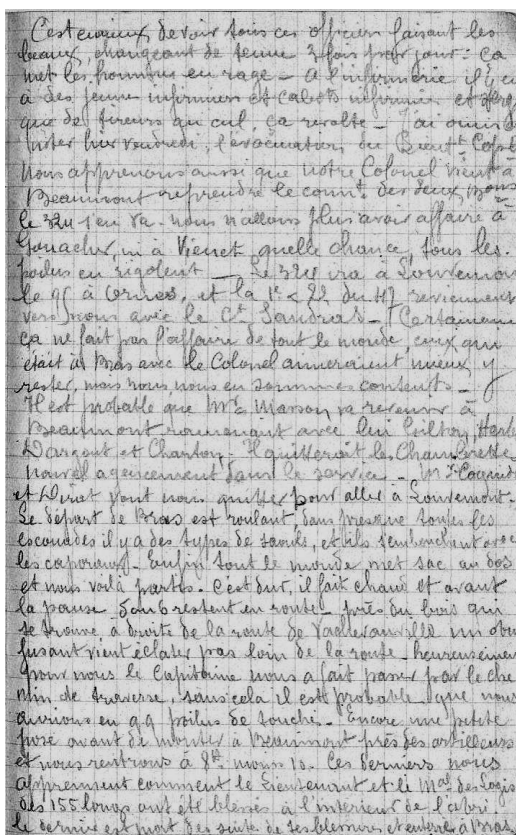 C'est curieux de voir tous ces officiers faisant les
beaux, changeant de tenue 3 fois par jour : ça
met les hommes en rage - A l'infirmerie il y en
a des jeunes infirmiers et cabots infirmiers et
que de tireurs au cul, ça révolte - J'ai omis de
noter hier vendredi, l'évacuation du
Nous apprenons aussi que notre Colonel vient à
Beaumont reprendre le comm't des deux Bons
le 324 s'en va - nous n'allons plus avoir affaire à
ni à Vienet quelle chance, tous les
poilus en rigolent - Le 324 ira à Louvemont
le 95 à Ornes, et la 1e 22 du reviennent
vers nous avec le Ct Landras - Certainement
ça ne fait pas l'affaire de tout le monde, ceux qui
était à Bras avec le Colonel aimeraient mieux y
rester, mais nous nous en sommes contents -
Il est probable que Mr Masson va revenir à
Beaumont ramenant avec lui
Dargent et Charton - Il quitterait les Chambrettes
nouvel agencement dans le service -
et vont nous quitter pour aller à Louvemont.
Le départ de Bras est roulant, dans presque toutes les
escouades il y a des types de saouls, et ils s'embauchent avec
les caporaux - Enfin tout le monde met sac au dos
et nous voilà partis. C'est dur, il fait chaud et avant
la pause 5 ou 6 restent en route - près du bois qui
se trouve à droite de la route de Vacherauville un obus
fusant vient éclater pas loin de la route - heureusement
pour nous le Capitaine nous a fait passer par le che
min de traverse, sans cela il est probable que nous
aurions eu qq poilus de touchés - Encore une petite
pose avant de monter à Beaumont près des artilleurs
et nous rentrons à 8h moins 10. Ces derniers nous
apprennent comment le Lieutenant et le Mal des Logis
des 155 longs ont été blessés à l'intérieur de l'abri
le dernier est mort des suite de ses blessures et enterré à Bras